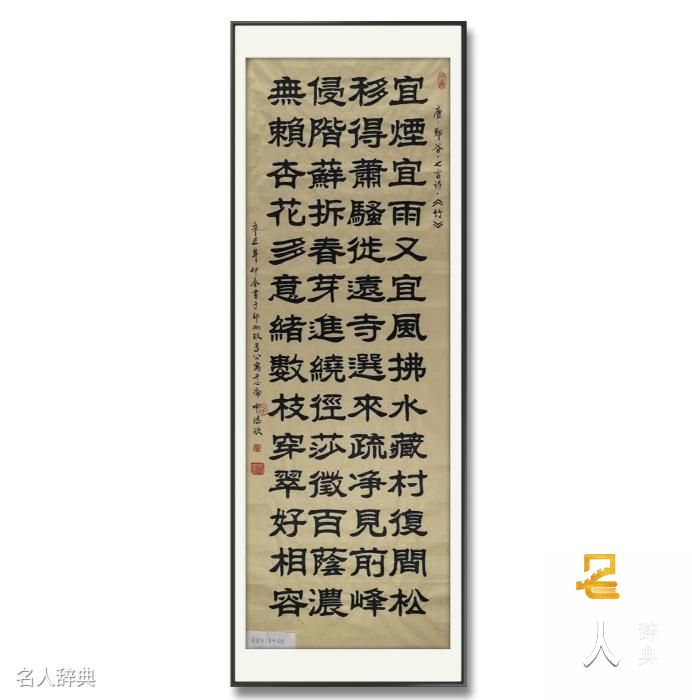 唐·郑谷·七言诗·《竹》
宜煙宜雨又宜風拂水藏村復間松
移得蕭騷從遠寺選來疏净見前峰
侵階蘚拆春芽進繞徑莎微百蔭濃
無賴杏花多意緒數枝穿翠好相容
辛丑年仲春書于郑州
名人辞典
名人辞典